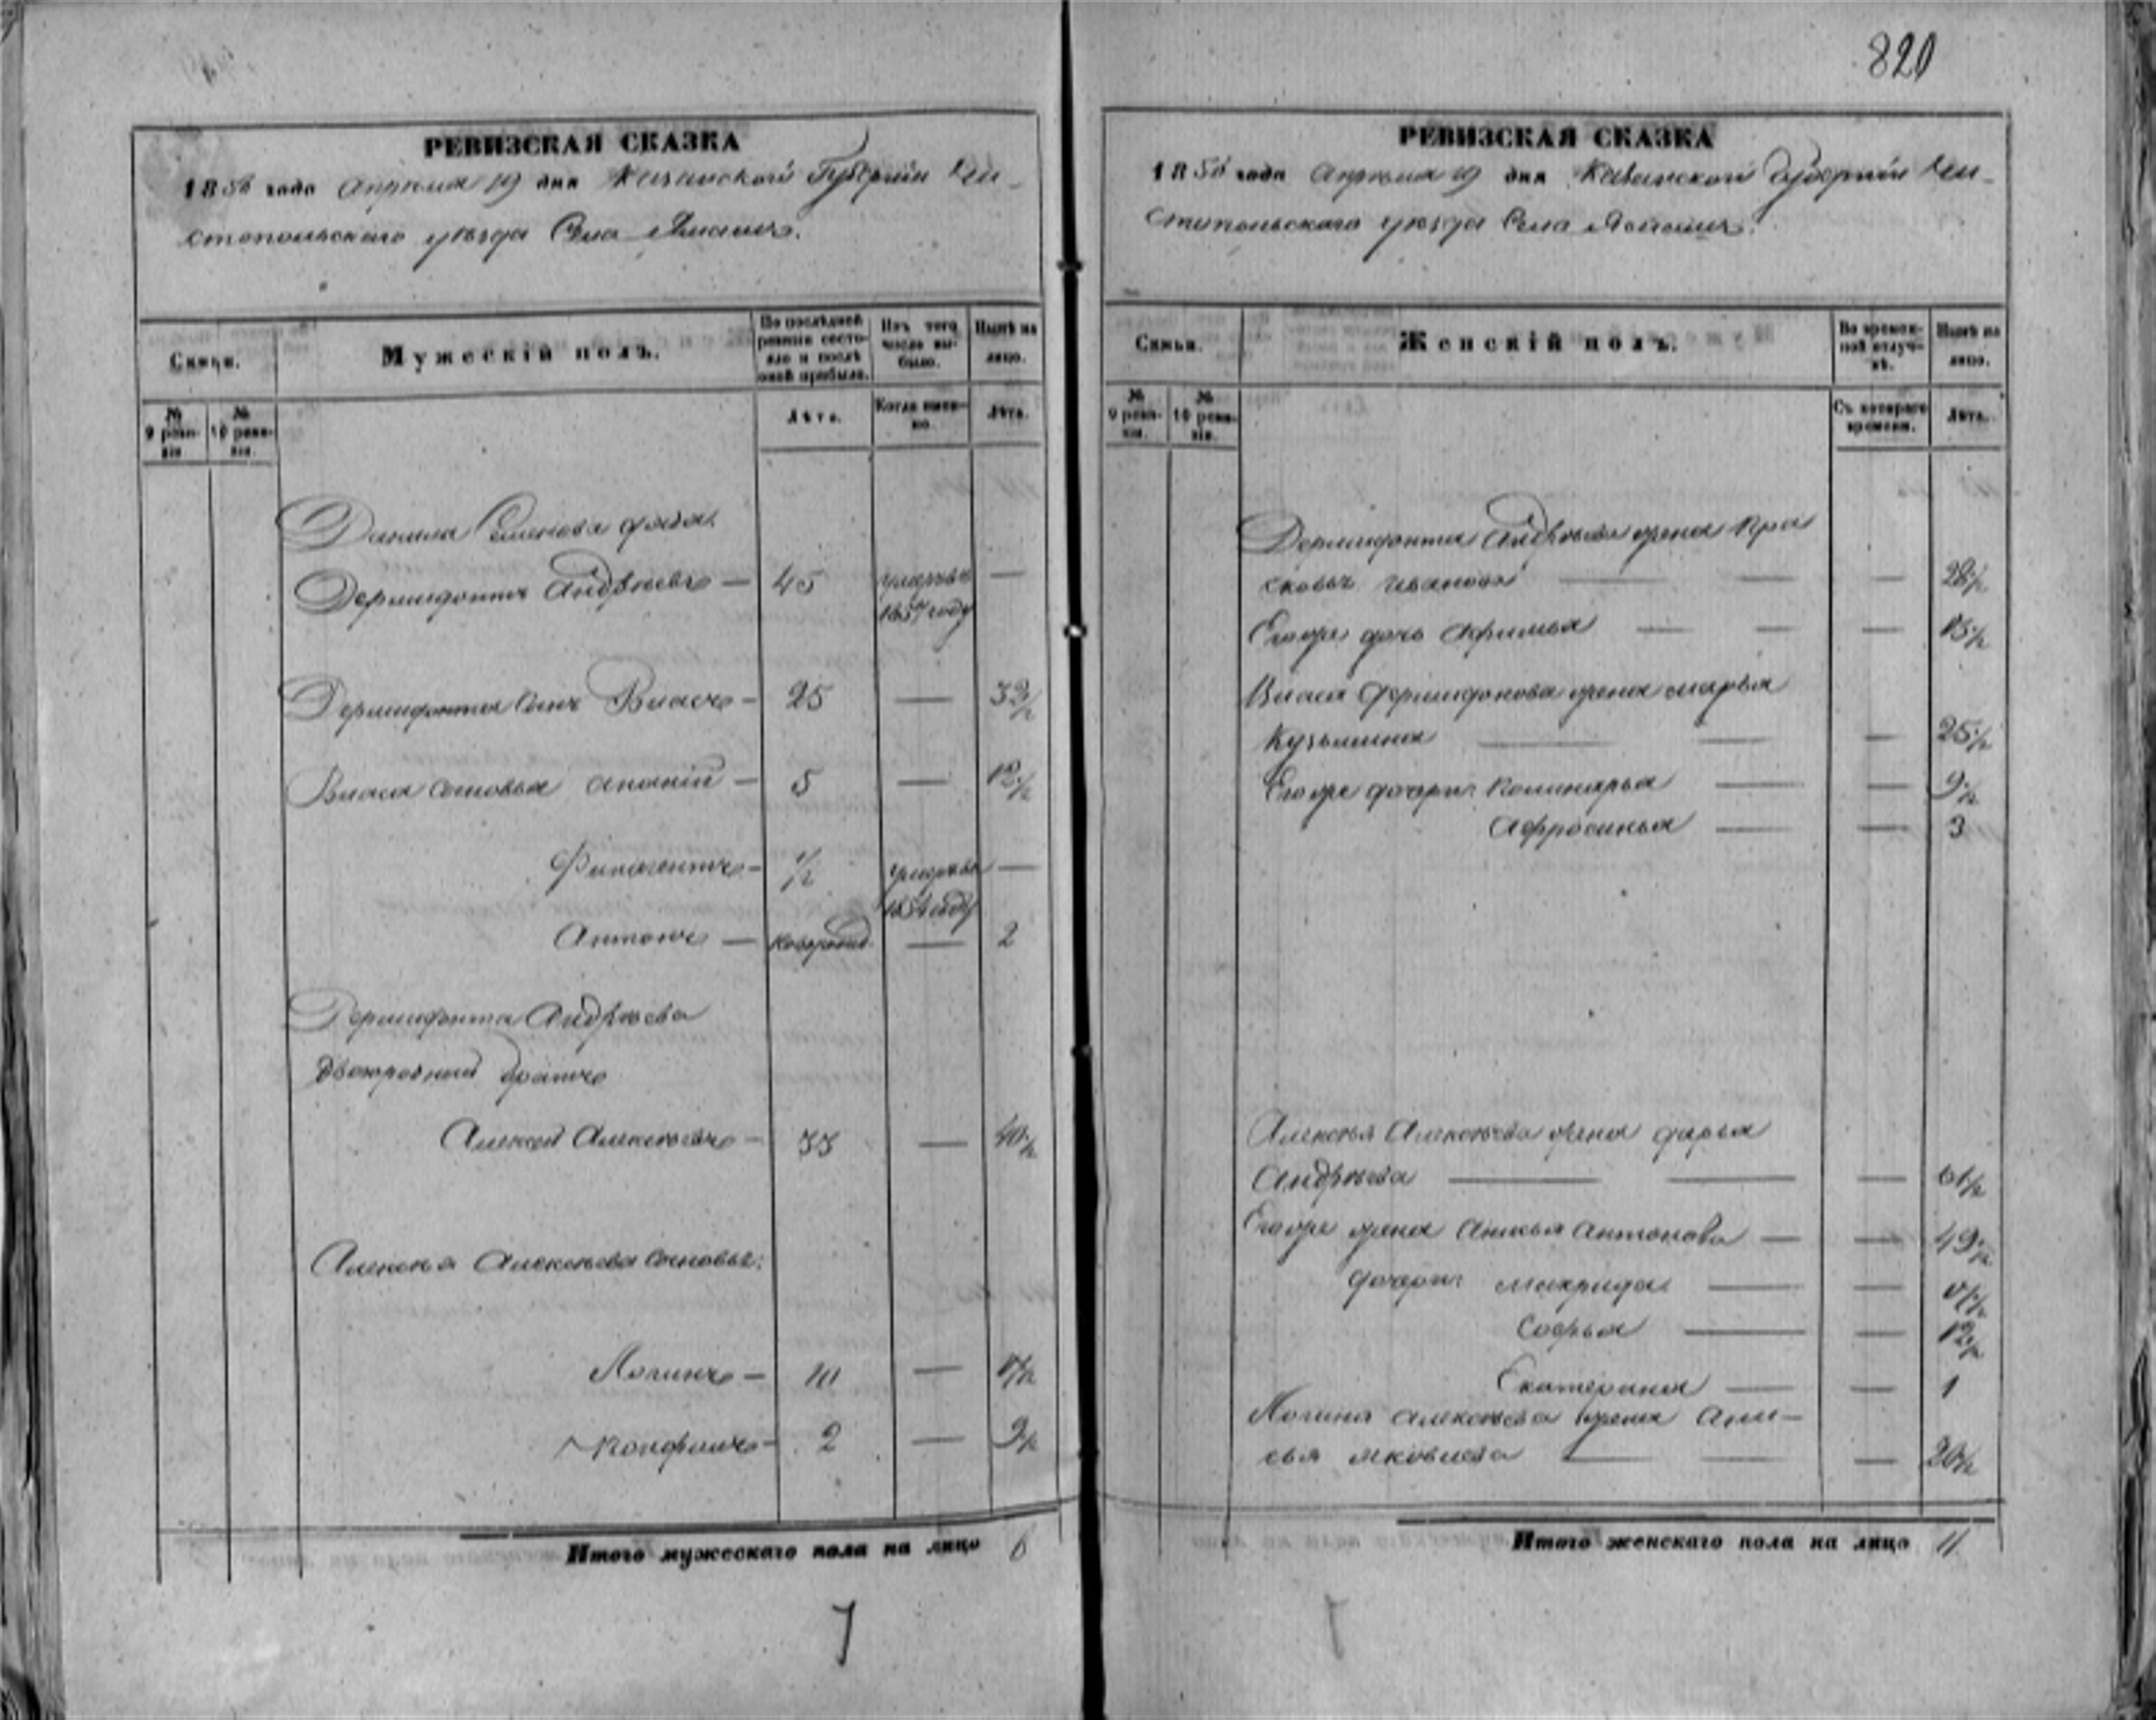 820
РЕВИЗСКАЯ СКАЗКА
1858 года Апреля 19 дня Казанской Губернии Чи-
стопольскаго уезда Села
Семьи.
Мужескій полъ.
По последней ревизіи состояло и после оной прибыло.
Изъ того числа выбыло.
Ныне на лицо.
№ 9 ревизіи
№ 10 ревизіи.
Лета.
Когда именно.
Лета.
Данила Семенова дядя
Дермидонтъ Андреевъ — 45 умеръ —
1857 году
Дермидонта сынъ Власъ — 25 — 32½
Власа сыновья Ананій — 5 — 12½
Филагентъ — ½ умеръ —
1854 году
Антонъ — новорожд. — 2
Дермидонта Андреева
двоюродный братъ
Алексей Алексеевъ — 33 — 40½
Алексея Алексеева сыновья:
Логинъ — 10 — 17½
— 2 — 9½
Итого мужескаго пола на лицо 6
7
РЕВИЗСКАЯ СКАЗКА
1858 года Апреля 19 дня Казанской Губерніи Чи-
стопольскаго уезда Села
Семьи.
Женскій полъ.
Во временной отлучке.
Ныне на лицо.
№ 9 ревизіи.
№ 10 ревизіи.
Съ котораго времени.
Лета.
Дермидонта Андреева жена Пра
сковья Иванова — — — 28½
Егоже дочь Афимья — — — 15½
Власа Дермидонова жена Марья
Кузьмина — — — 25½
Егоже дочери: — — 9½
Афросинья — — 3
Алексея Алексеева жена Дарья
Андреева — — — 61½
Егоже жена Анисья Антонова — — 49½
дочери: Макрида — — 17½
Софья — — 12½
Екатерина — — 1
Логина Алексеева жена Ани-
сья Яковлева — — — 20½
Итого женскаго пола на лицо 11